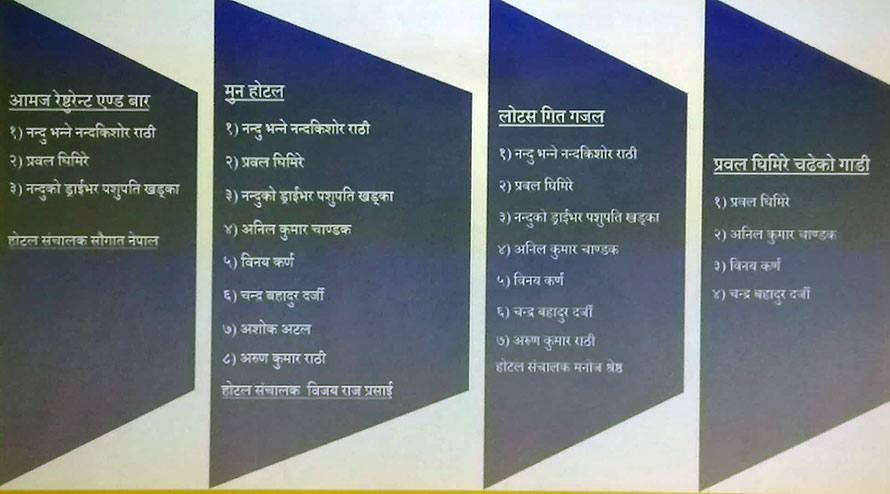 आमज रेष्टुरेन्ट एण्ड बार
१) नन्दु भन्ने नन्दकिशोर राठी
२) प्रवल घिमिरे
३) नन्दुको ड्राईभर पशुपति खड्का
होटल संचालक सौगात नेपाल
मुन होटल
१) नन्दु भन्ने नन्दकिशोर राठी
२) प्रवल घिमिरे
३) नन्दुको ड्राईभर पशुपति खड्का
४) अनिल कुमार चाण्डक
५) विनय कर्ण
६) चन्द्र बहादुर दर्जी
७) अशोक अटल
८) अरुण कुमार राठी
होटल संचालक विजय राज प्रसाई
लोटस गित गजल
१) नन्दु भन्ने नन्दकिशोर राठी
२) प्रवल घिमिरे
३) नन्दुको ड्राईभर पशुपति खड्का
४) अनिल कुमार चाण्डक
५) विनय कर्ण
६) चन्द्र बहादुर दर्जी
७) अरुण कुमार राठी
होटल संचालक मनोज श्रेष्ठ
प्रवल घिमिरे चढेको गाडी
१) प्रवल घिमिरे
२) अनिल कुमार चाण्डक
३) विनय कर्ण
४) चन्द्र बहादुर दर्जी